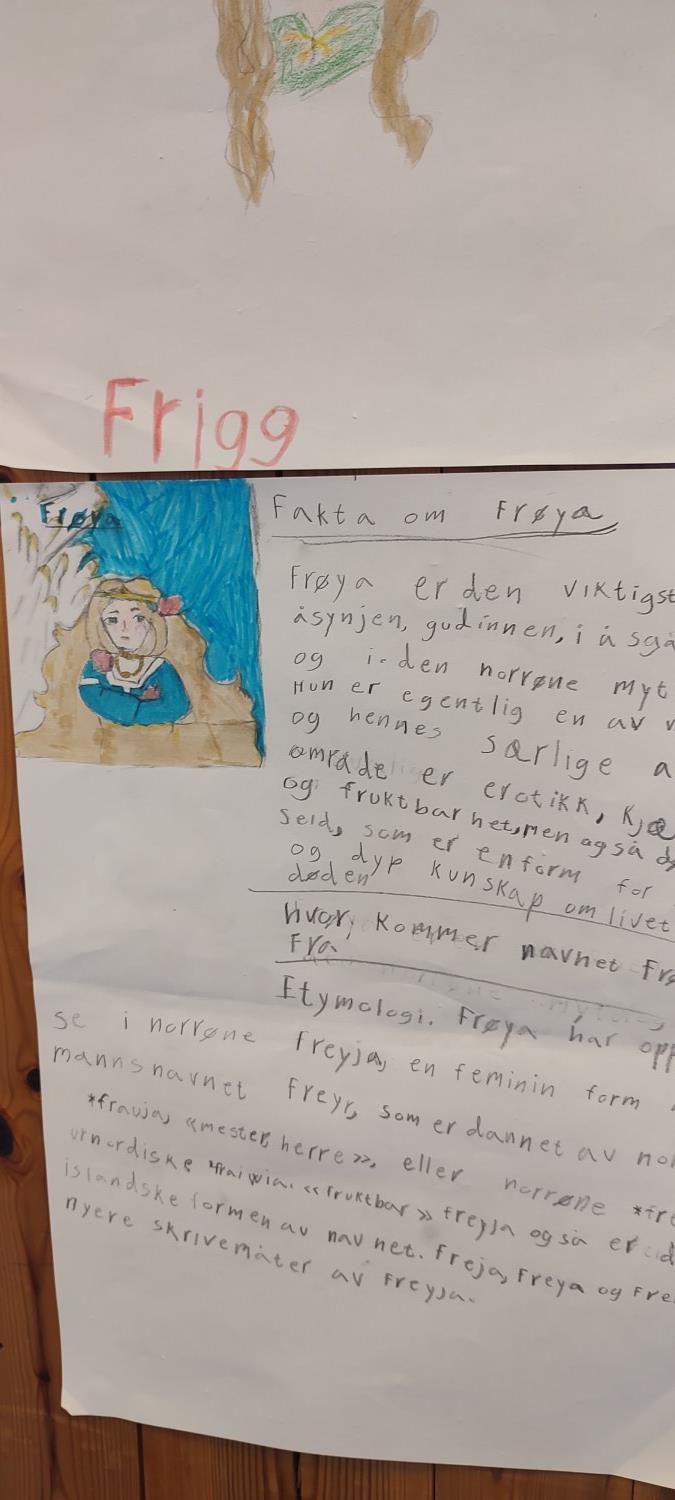 Frigg
Frøya
Fakta om Frøya
Frøya er den viktigst
åsynjen, gudinnen, i åsgå
og i den norrøne myt
Hun er egentlig en av v
og hennes særlige a
område er erotikk, kjæ
og fruktbarhet, men også d
seid, som er en form for
og dyp kunskap om livet
døden
Hvor kommer navnet Frø
Fra
Etymologi. Frøya har opp
se i norrøne Freyja, en feminin form
mannsnavnet freyr, som er dannet av nor
*frauja, «mester, herre», eller norrøne *fra
urnordiske *fraiwia. «fruktbar» freyja også er
islandske formen av navnet. Freja, Freya og Fre
nyere skrivemåter av Freyja.